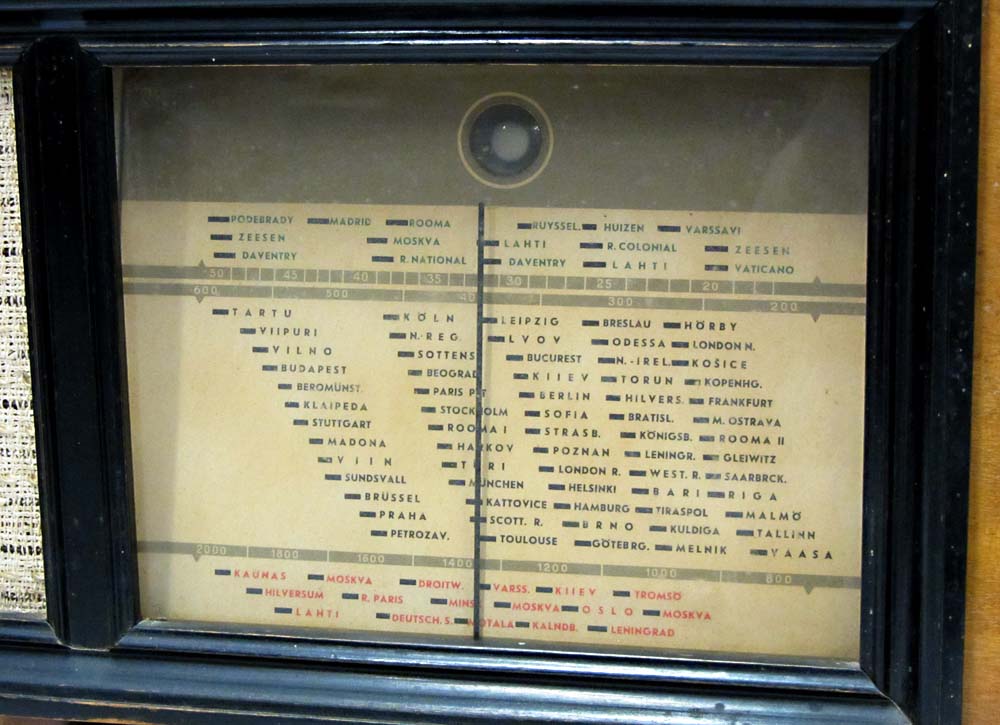 PODEBRADY MADRID ROOMA BRUYSSEL. HUIZEN VARSSAVI
ZEESEN MOSKVA LAHTI R. COLONIAL ZEESEN
DAVENTRY R. NATIONAL DAVENTRY LAHTI VATICANO
50 45 40 35 30 25 20
600 500 40 300 200
TARTU KÖLN LEIPZIG BRESLAU HÖRBY
VIIPURI N. REG. LVOV ODESSA LONDON N.
VILNO SOTTENS BUCUREST N.-IREL. KOŠICE
BUDAPEST BEOGRAD KIIEV TORUN KOPENHG.
BEROMÜNST. PARIS PTT BERLIN HILVERS. FRANKFURT
KLAIPEDA STOCKHOLM SOFIA BRATISL. M. OSTRAVA
STUTTGART ROOMA I STRASB. KÖNIGSB. ROOMA II
MADONA HARKOV POZNAN LENINGR. GLEIWITZ
VIIN TÜRI LONDON R. WEST. R. SAARBRCK.
SUNDSVALL MÜNCHEN HELSINKI BARI RIGA
BRÜSSEL KATTOVICE HAMBURG TIRASPOL MALMÖ
PRAHA SCOTT. R. BRNO KULDIGA TALLINN
PETROZAV. TOULOUSE GÖTEBRG. MELNIK VAASA
2000 1800 1600 1400 1200 1000 800
KAUNAS MOSKVA DROITW. VARSS. KIIEV TROMSÖ
HILVERSUM R. PARIS MINSK MOSKVA OSLO MOSKVA
LAHTI DEUTSCH. S. MOTALA KALNDB. LENINGRAD